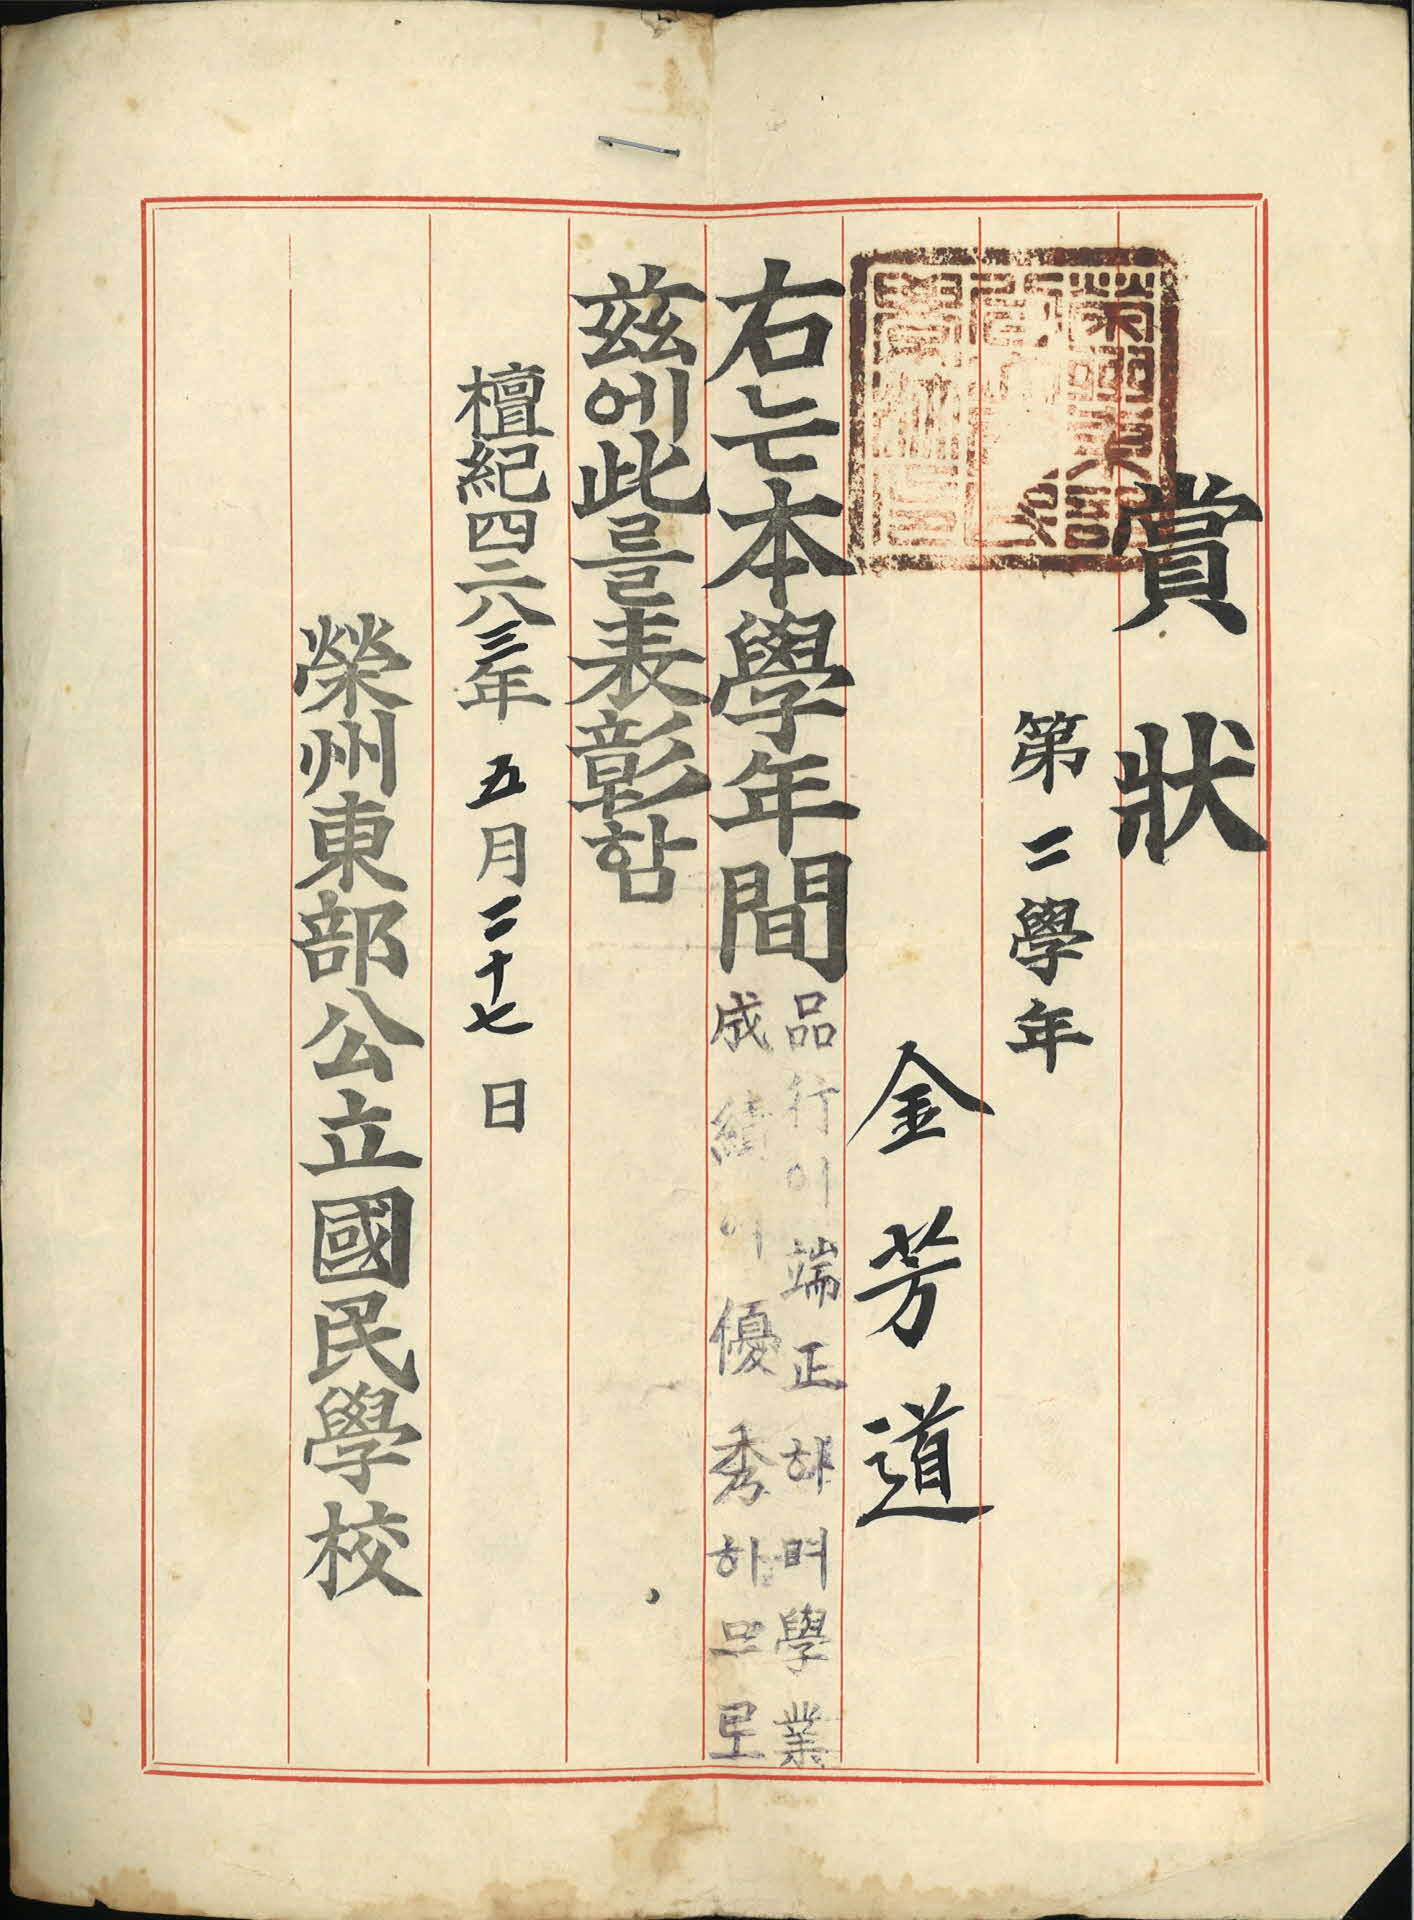 賞狀
第二學年
金芳道
右는本學年間
品行이端正하며學業
成績이優秀하므로
玆에此를表彰함
檀紀四二八三年五月二十七日
榮州東部公立國民學校